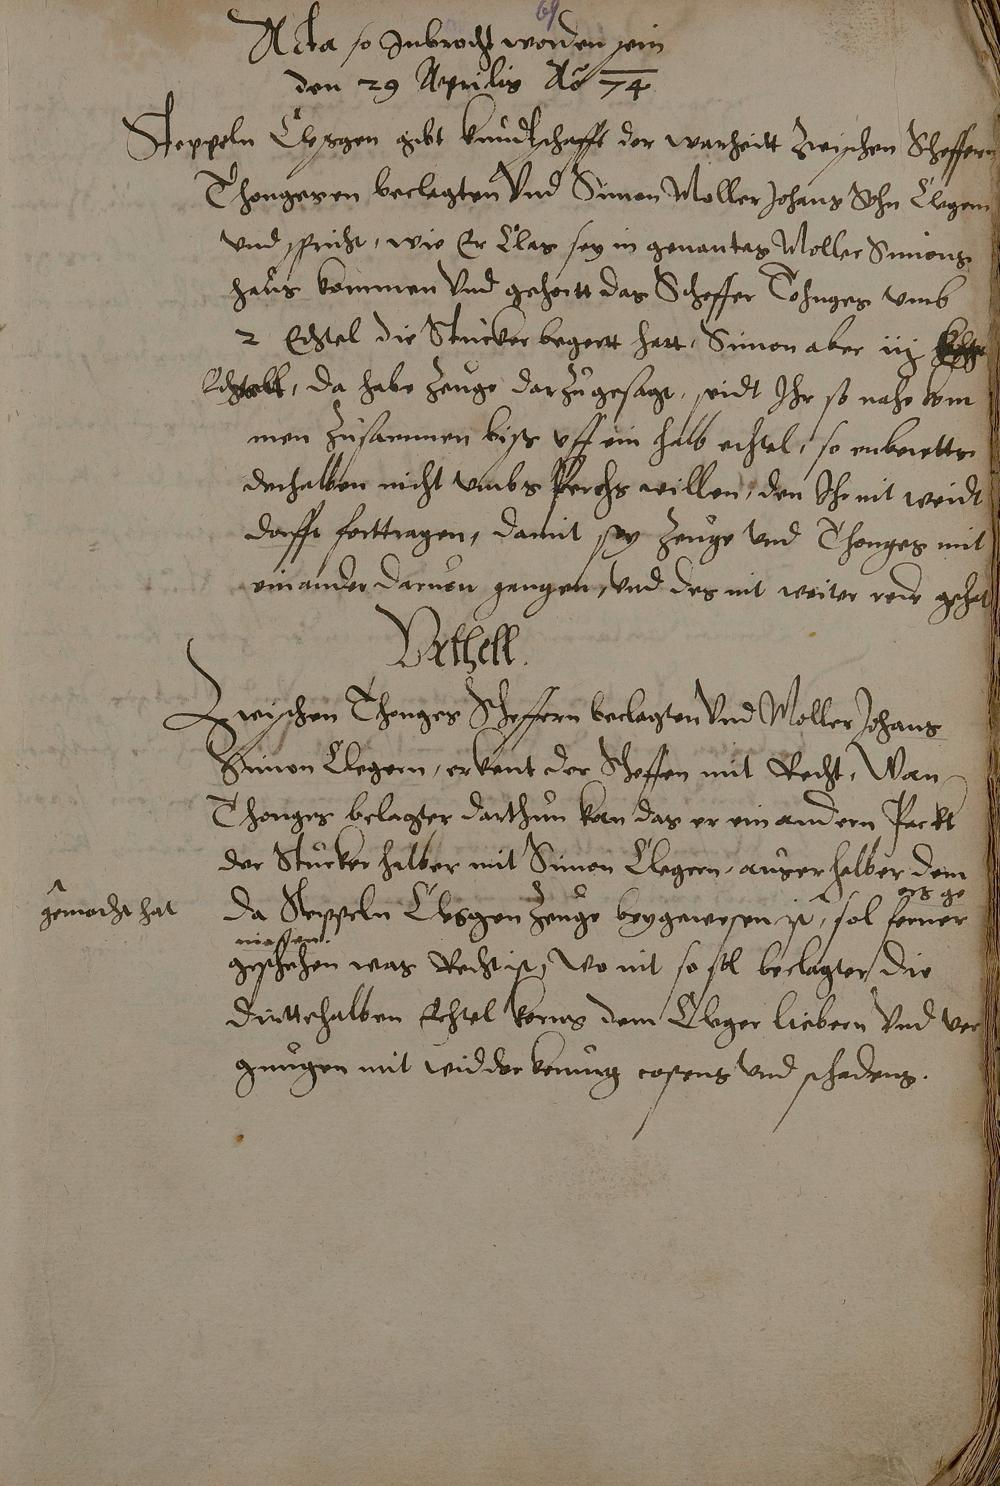 69
Acta so Inbracht worden sein
den 29 Aprilis Ao 74
Steppeln Clesgen gibt kundtschafft der warheitt Zwischen Scheffern
Thongesen beclagten Vnd Simon Moller Johans Sohn Clegern
vnd spricht, wie Er Clas sey in genantes Moller Simons
haus kommen Vnd gehortt das Scheffer Tohnges vmb
2 Echtel die Stucker begertt hatt, Simon aber iij
Echtell, da habe Zeuge darzu gesagt, seidt Ihr so nahe kom
men Zusammen biss vff ein halb echtel, so
derhalben nicht vmbs willen, den Ihr nit weidt
dorfft forttragen, damit sey Zeuge vnd Thonges mit
einander daruon gangen, vnd des nit weiter rede gehat
Vrthell.
Zwischen Thonges Scheffern beclagten Vnd Moller Johans
Simon Clegern, erkent der Scheffen mit Recht, Wan
Thonges belagter darthun kan das er ein andern Packt
der Stucker halber mit Simon Clegern, auserhalber dem
gemacht hat
da Steppeln Clesgen Zeuge beygewesen ist, sol ferner
ers ge
niessen.
geschehen was Recht ist, Wo nit so sol beclagter die
drittehalben Echtel korns dem Cleger liebern Vnd ver
gnugen mit widderkerung costens vnd schadens.